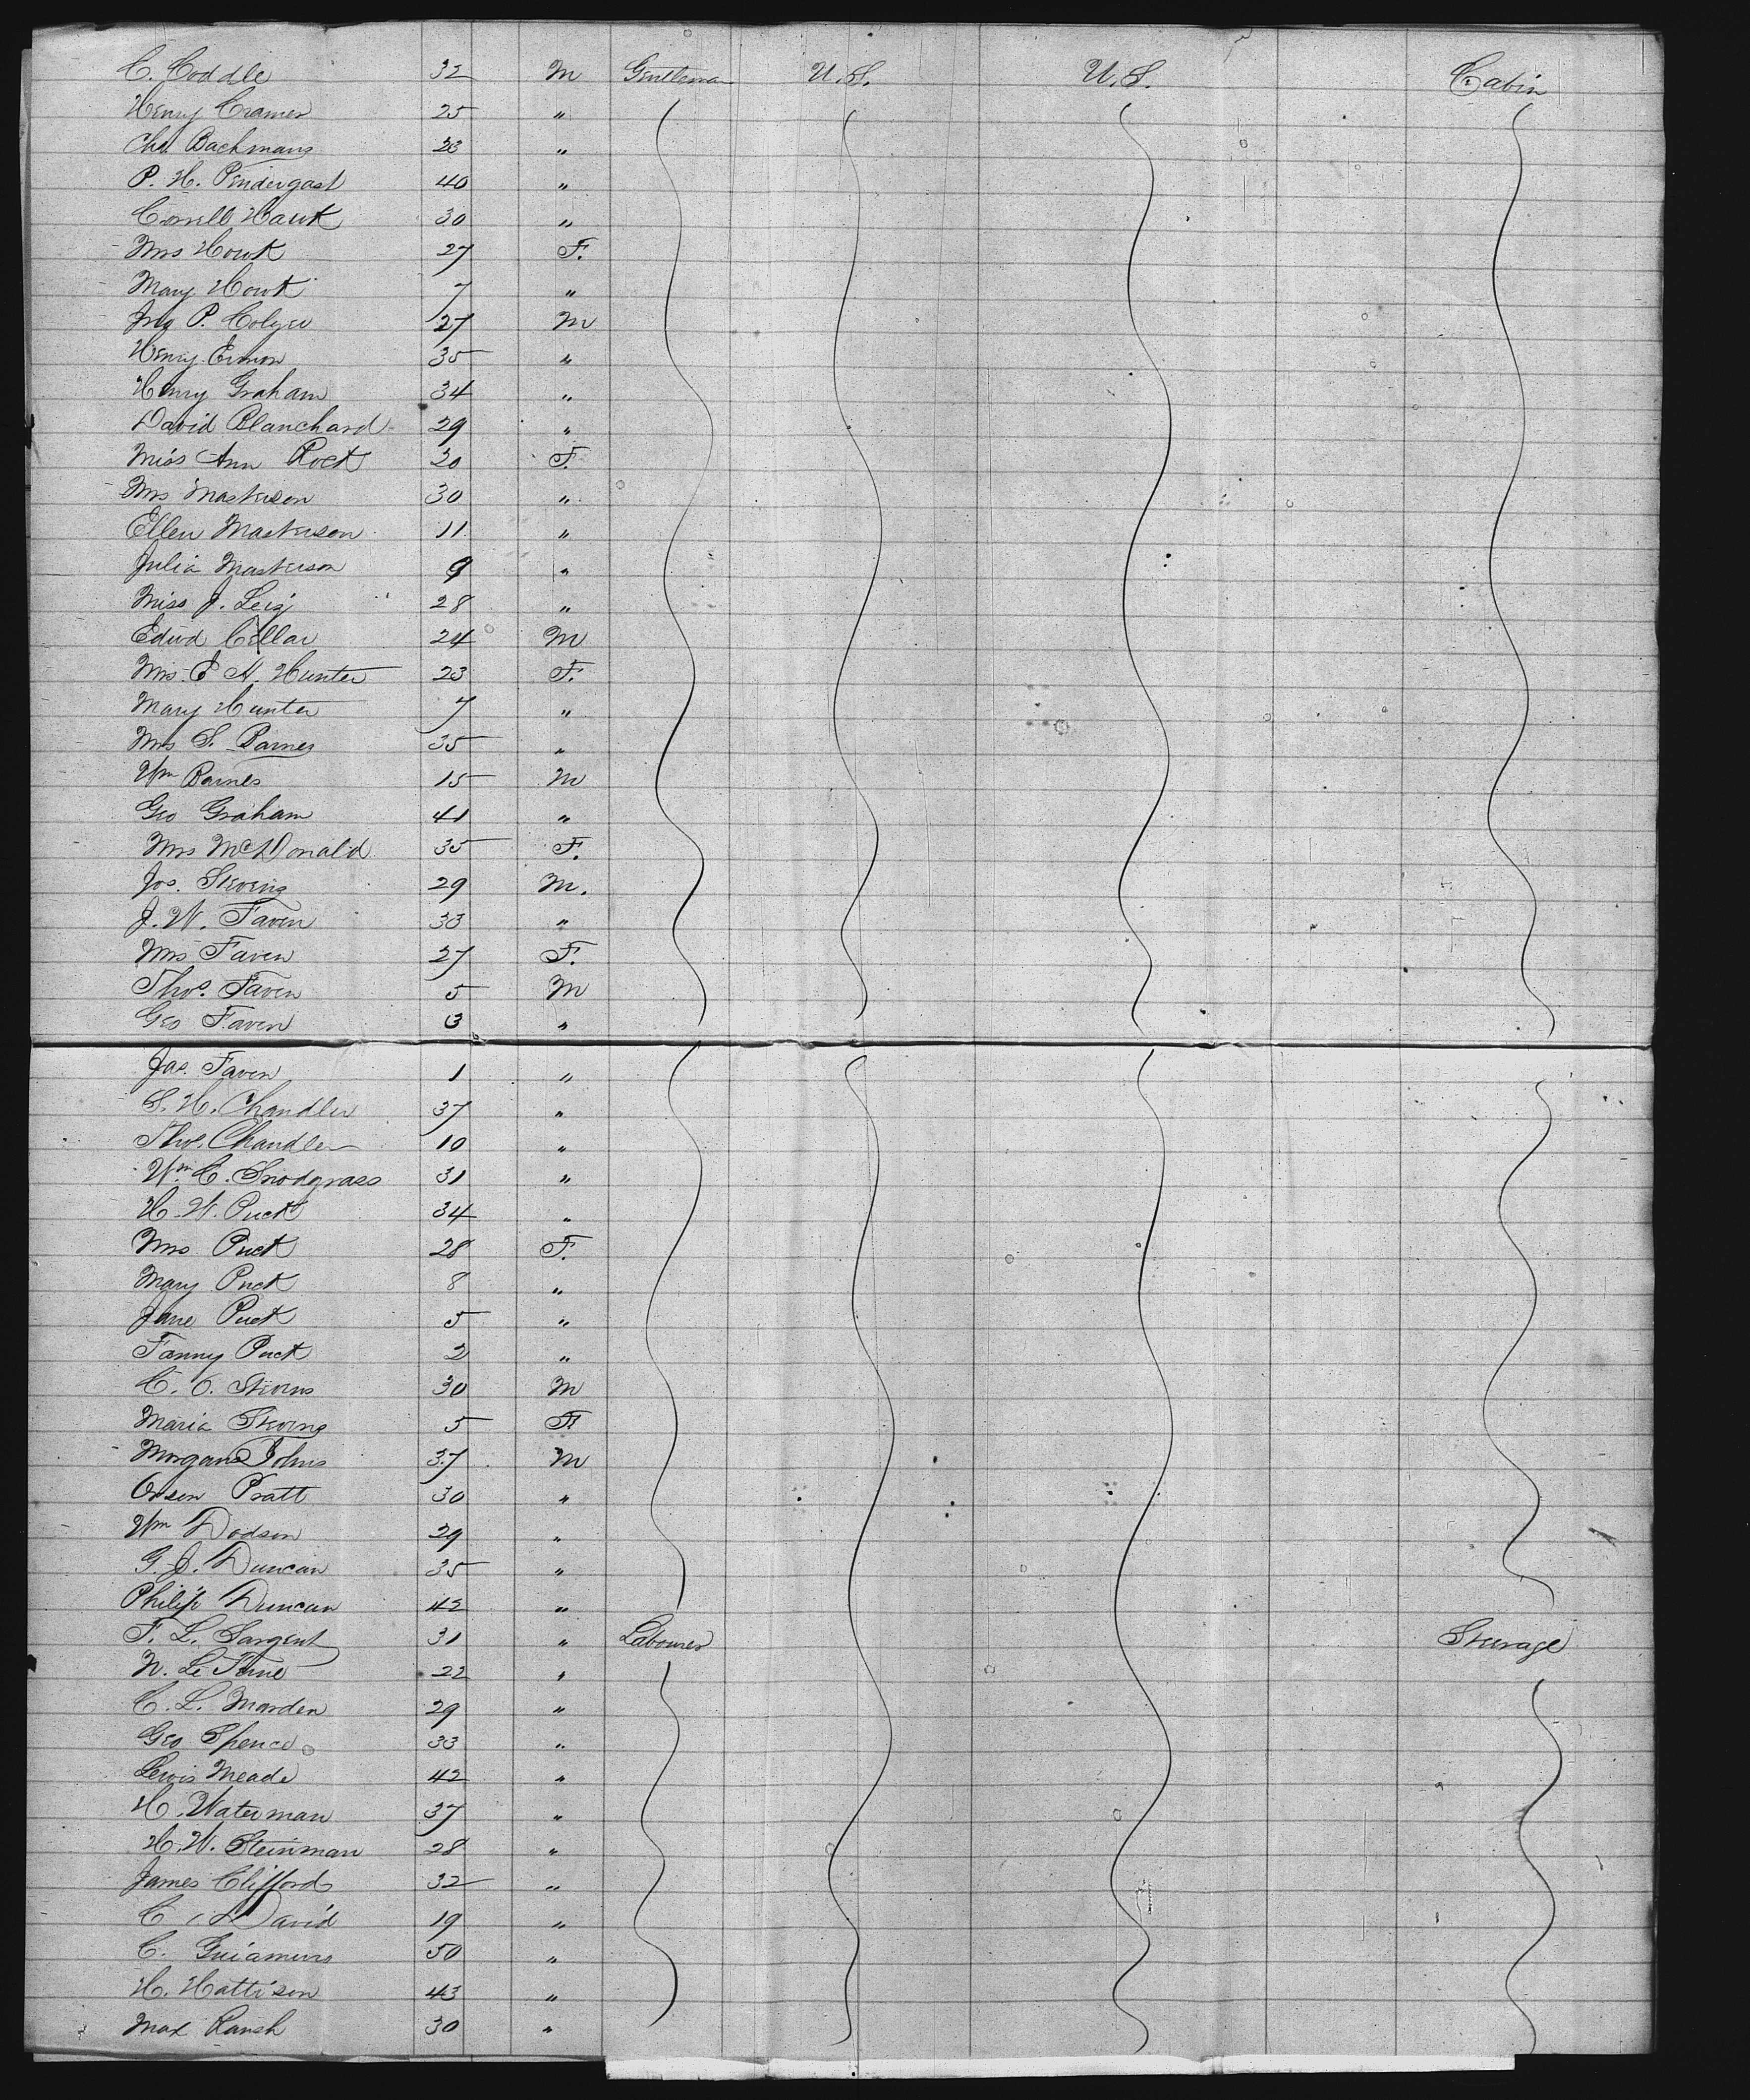 C. Coddle 32 M Gentleman U.S. U.S. Cabin
Henry Cramer 25 "
Chs. Bachmann 23 "
P. H. Pendergast 40 "
Hawk 30 "
Mrs Howk 27 F.
Mary Howk 7 "
Jno P. Colyer 27 M
Henry 35 "
Henry Graham 34 "
David Blanchard 29 "
Miss Ann Rock 20 F.
Mrs Masterson 30 "
Ellen Masterson 11 "
Julia Masterson 9 "
Miss J. 28 "
Edwd Cellar 24 M
Mrs. E H. Hunter 23 F.
Mary Hunter 7 "
Mrs S. Barnes 35 "
Wm Barnes 15 M
Geo Graham 41 "
Mrs McDonald 35 F.
Jos. Stevens 29 M.
J. W. Faven 33 "
Mrs Faven 27 F.
Thos. Faven 5 M
Geo Faven 3 "
Jas. Faven 1 "
S. H. Chandler 37 "
Thos. Chandler 10 "
Wm. C. Snodgrass 31 "
H. W. Puck 34 "
Mrs Puck 28 F.
Mary Puck 8 "
Jane Puck 5 "
Fanny Puck 2 "
C. O. Stevens 30 M
Maria Stevens 5 F
Morgan Johns 37 M
Orsen Pratt 30 "
Wm Dodson 29 "
G. J. Duncan 35 "
Philip Duncan 42 "
F. L. Sargent 31 " Labourer Steerage
N. Le 22 "
C. L. Marden 29 "
Geo Spence 33 "
Lewis Meade 42 "
H. Waterman 37 "
H. W. Steinman 28 "
James Clifford 32 "
C David 19 "
C. 50 "
H. Hattison 43 "
Max Ransh 30 "